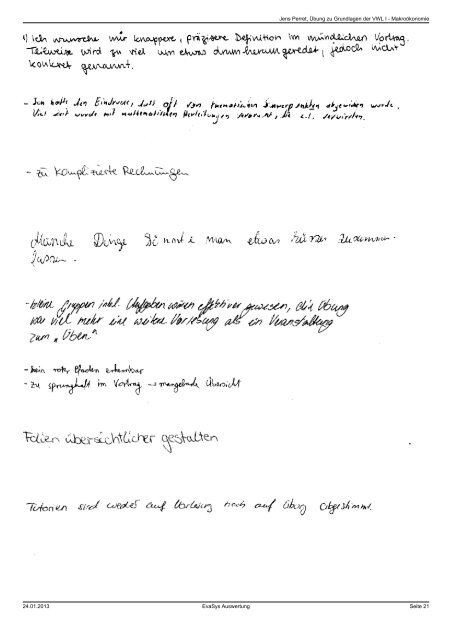 Jens Perret, Übung zu Grundlagen der VWL I - Makroökonomie
1) Ich wünsche mir knappere, präzisere Definition im mündlichen Vortrag.
Teilweise wird zu viel um etwas drumherumgeredet, jedoch nicht
konkret genannt.
- Ich hatte den Eindruck, dass oft von thematischen abgewichen wurde.
Viel Zeit wurde mit mathematischen Herleitungen die z.T. verwirrten.
- zu komplizierte Rechnungen
Manche Dinge könnte man etwas kürzer zusammen-
fassen.
- kleine Gruppen inkl. Aufgaben wären effektiver gewesen, die Übung
war viel mehr eine weitere Vorlesung als ein Veranstaltung
zum "Üben"
- kein roter Pfaden erkennbar
- zu sprunghaft im Vortrag → mangelnde Übersicht
Folien übersichtlicher gestalten
Tutorien sind weder auf Vorlesung noch auf Übung abgestimmt.
24.01.2013
EvaSys Auswertung
Seite 21